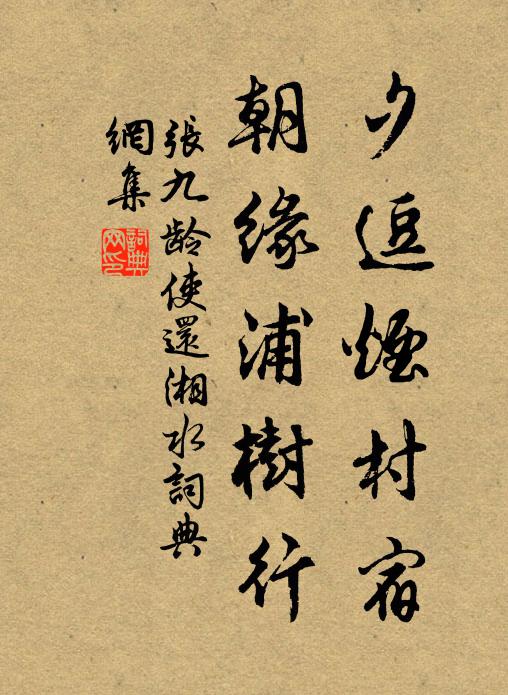 夕逗煙村宿
朝緣浦樹行
張九齡使還湘水詞典
網集
詞典
网印